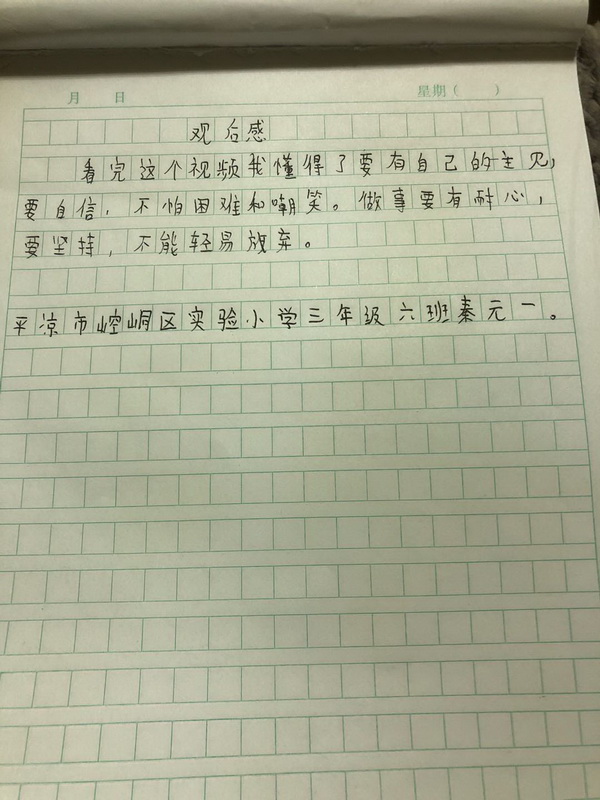 月 日 星期( )
观后感
看完这个视频我懂得了要有自己的主见,
要自信,不怕困难和嘲笑。做事要有耐心,
要坚持,不能轻易放弃。
平凉市崆峒区实验小学三年级六班秦元一。